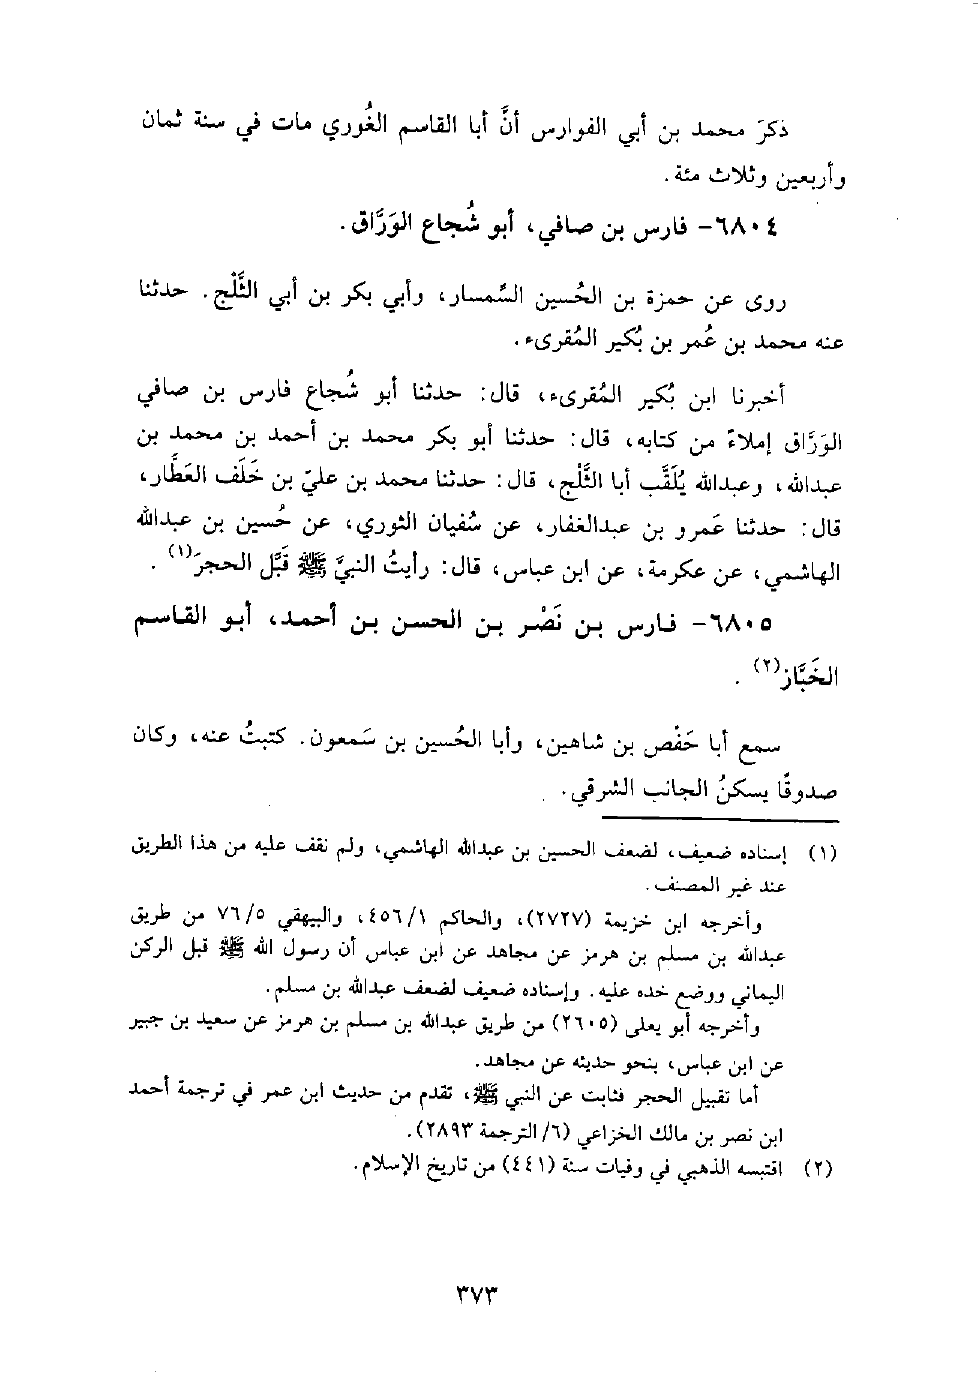 ذكرَ محمد بن أبي الفوارس أنَّ أبا القاسم الغُوري مات في سنة ثمان
وأربعين وثلاث مئة.
٦٨٠٤- فارس بن صافي، أبو شُجاع الوَرَّاق.
روى عن حمزة بن الحُسين السَّمسار، وأبي بكر بن أبي الثَّلْج. حدثنا
عنه محمد بن عُمر بن بُكير المُقرىء.
أخبرنا ابن بُكير المُقرىء، قال: حدثنا أبو شُجاع فارس بن صافي
الوَرَّاق إملاءً من كتابه، قال: حدثنا أبو بكر محمد بن أحمد بن محمد بن
عبدالله، وعبدالله يُلَقَّب أبا الثَّلْج، قال: حدثنا محمد بن عليّ بن خَلَف العَطَّار،
قال: حدثنا عَمرو بن عبدالغفار، عن سُفيان الثوري، عن حُسين بن عبدالله
الهاشمي، عن عكرمة، عن ابن عباس، قال: رأيتُ النبيَّ ﷺ قَبَّل الحجرَ(١).
٦٨٠٥- فارس بن نَصْر بن الحسن بن أحمد، أبو القاسم
الخَبَّاز(٢).
سمع أبا حَفْص بن شاهين، وأبا الحُسين بن سَمعون. كتبتُ عنه، وكان
صدوقًا يسكنُ الجانب الشرقي.
(١) إسناده ضعيف، لضعف الحسين بن عبدالله الهاشمي، ولم نقف عليه من هذا الطريق
عند غير المصنف.
وأخرجه ابن خزيمة (٢٧٢٧)، والحاكم ١/ ٤٥٦، والبيهقي ٥/ ٧٦ من طريق
عبدالله بن مسلم بن هرمز عن مجاهد عن ابن عباس أن رسول الله ﷺ قبل الركن
اليماني ووضع خده عليه. وإسناده ضعيف لضعف عبدالله بن مسلم.
وأخرجه أبو يعلى (٢٦٠٥) من طريق عبدالله بن مسلم بن هرمز عن سعيد بن جبير
عن ابن عباس، بنحو حديثه عن مجاهد.
أما تقبيل الحجر فثابت عن النبي ﷺ، تقدم من حديث ابن عمر في ترجمة أحمد
ابن نصر بن مالك الخزاعي (٦/ الترجمة ٢٨٩٣).
(٢) اقتبسه الذهبي في وفيات سنة (٤٤١) من تاريخ الإسلام.
٣٧٣